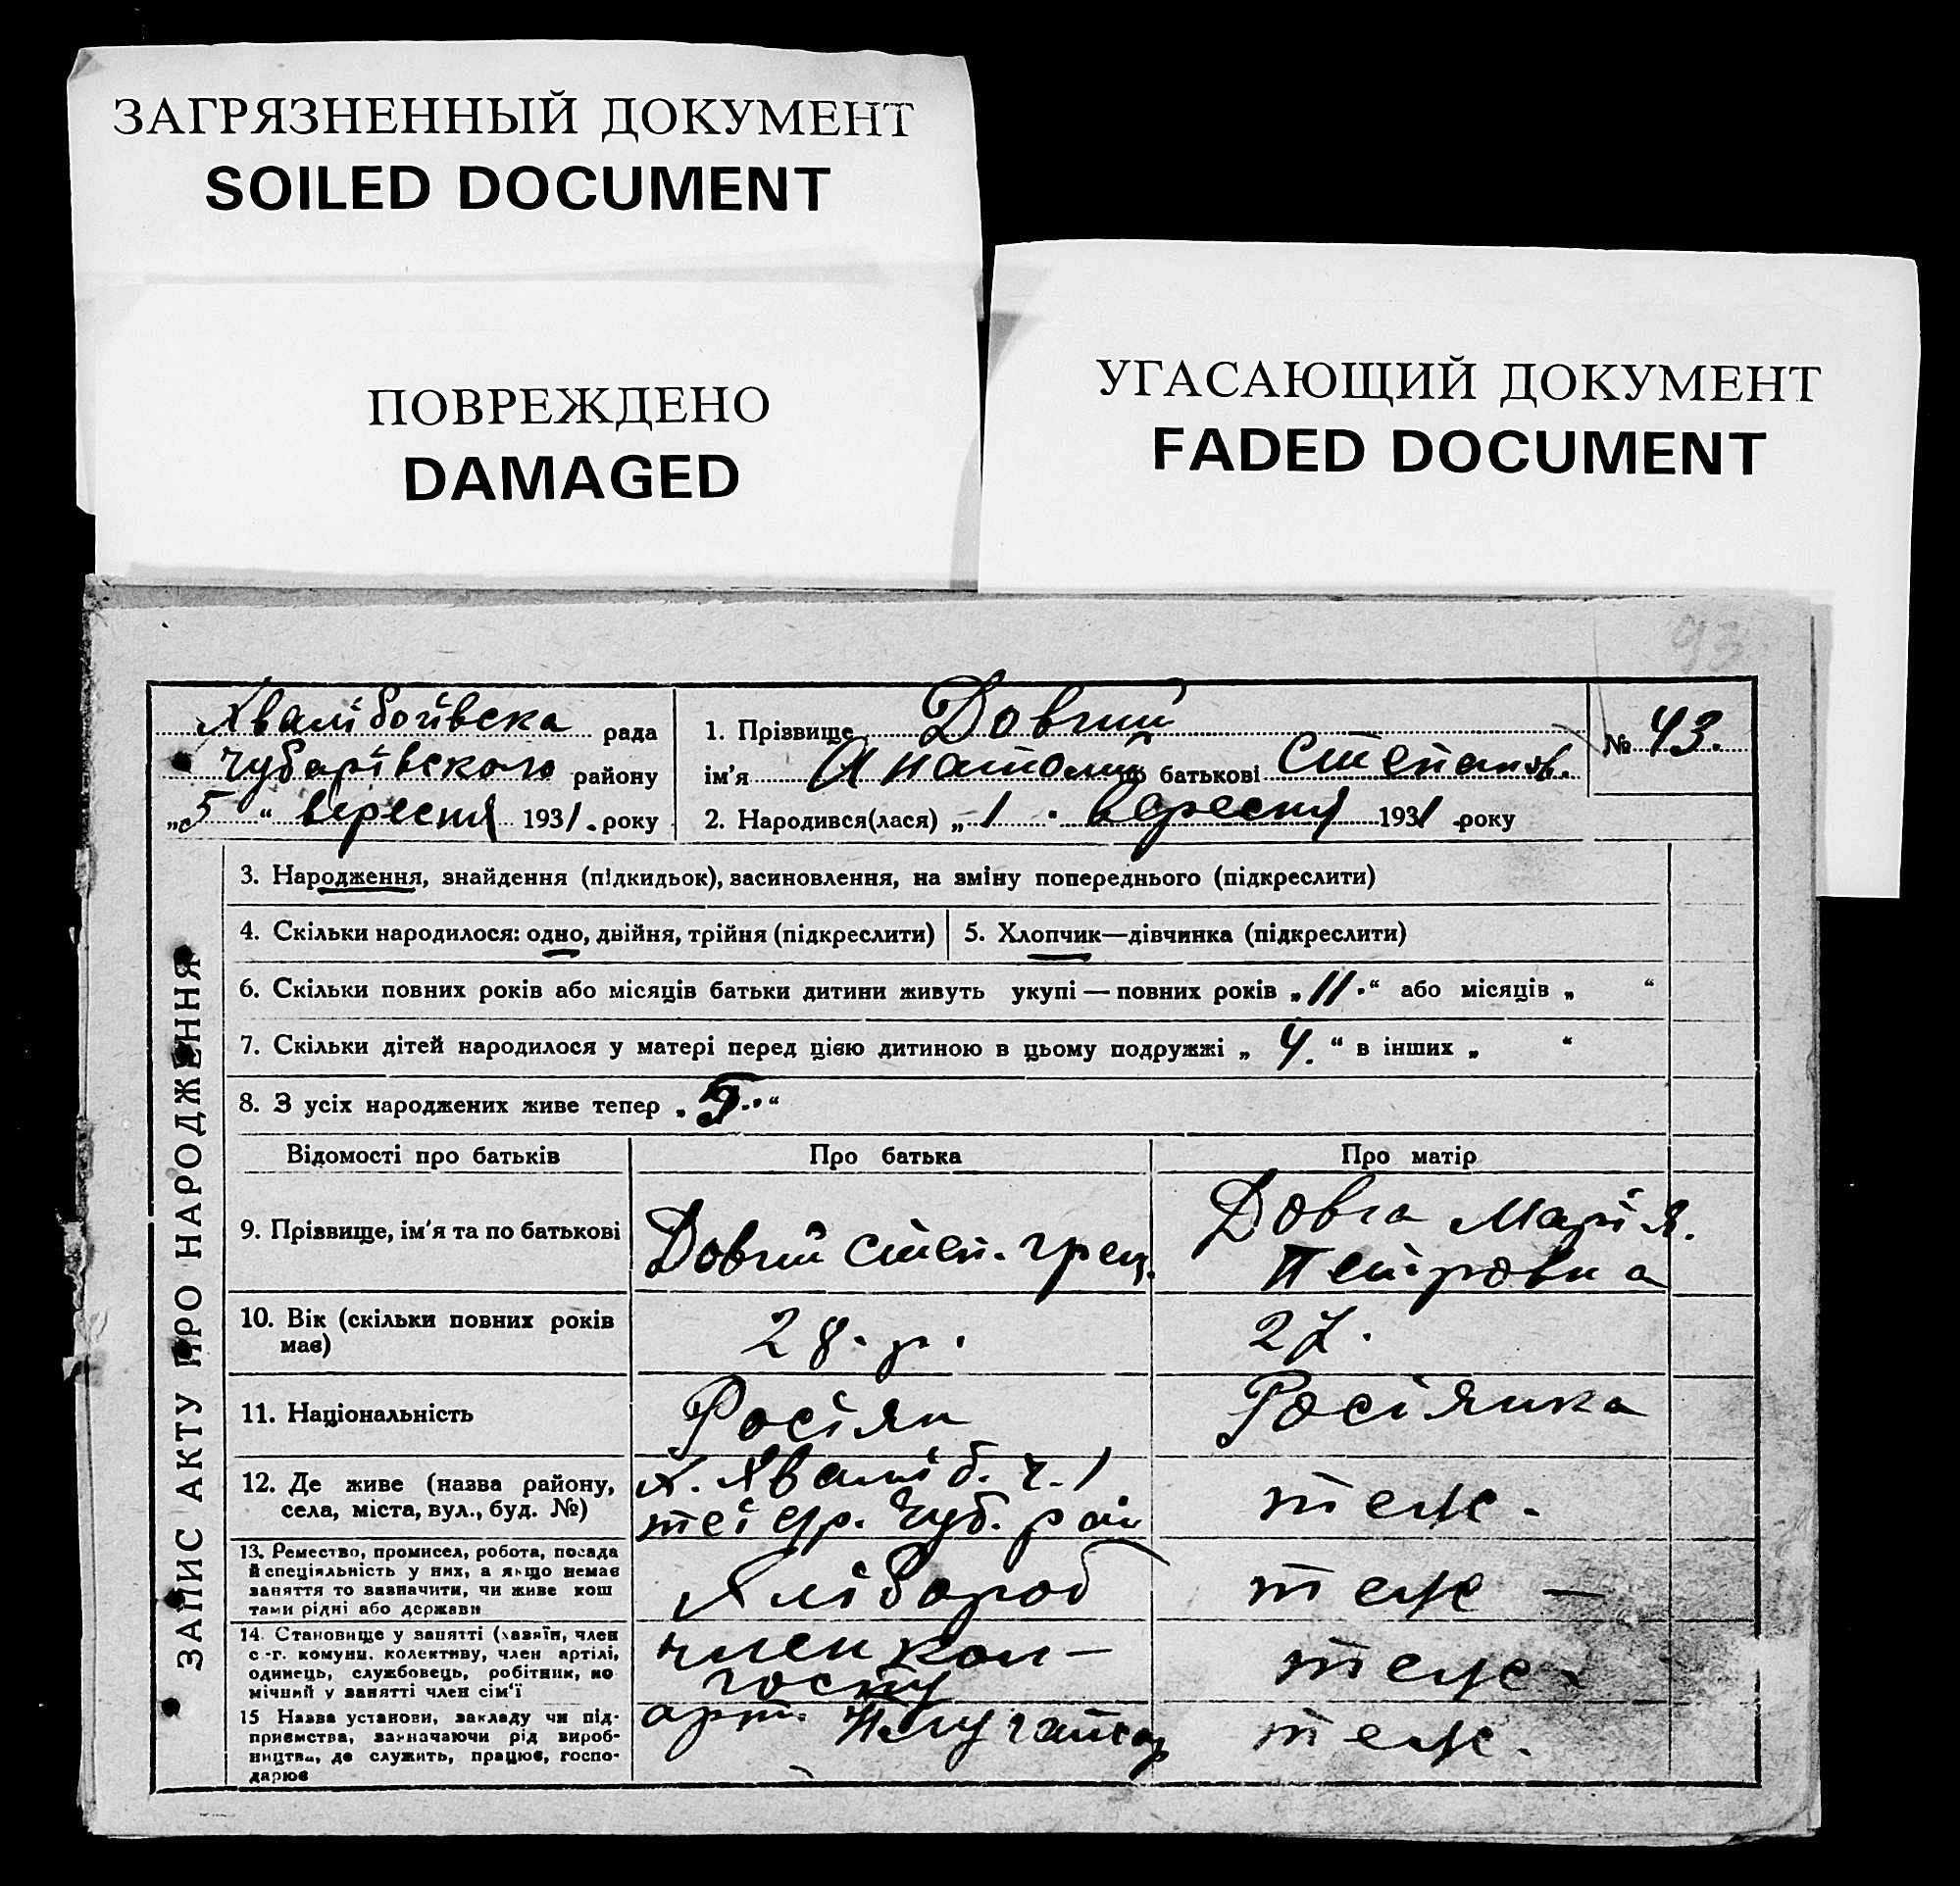 ЗАГРЯЗНЕННЫЙ ДОКУМЕНТ
SOILED DOCUMENT
ПОВРЕЖДЕНО
DAMAGED
УГАСАЮЩИЙ ДОКУМЕНТ
FADED DOCUMENT
93
Хвалібоївська рада
Чубарівського району
„5“ вересня 1931. року
1. Прізвище Довгий
ім'я Анатолий по батькові Степанов.
2. Народився(лася) „1“ вересня 1931 року
№ 43.
ЗАПИС АКТУ ПРО НАРОДЖЕННЯ
3. Народження, знайдення (підкидьок), васиновлення, на зміну попереднього (підкреслити)
4. Скільки народилося: одно, двійня, трійня (підкреслити)
5. Хлопчик—дівчинка (підкреслити)
6. Скільки повних років або місяців батьки дитини живуть укупі — повних років „11.“ або місяців „ “
7. Скільки дітей народилося у матері перед цією дитиною в цьому подружжі „ 4. “ в інших „ “
8. З усіх народжених живе тепер „5..“
Відомості про батьків Про батька Про матір
9. Прізвище, ім'я та по батькові
Довгий Степ.
Довга Марія.
Петровна
10. Вік (скільки повних років
має)
28. р.
27.
11. Національність
Росіян
Росіянка
12. Де живе (назва району,
села, міста, вул., буд. №)
Х. Хваліб. ч. 1
чуб. рай
теж.
13. Ремество, промисел, робота, посада
й спеціяльність у них, а якщо немає
заняття то зазначити, чи живе кош
тами рідні або держави
Хлібороб
теж —
14. Становище у занятті (хазяїн, член
с.-г. комуни. колективу, член артілі,
одинець, службовець, робітник, по
мічний у занятті член сім'ї
член кол-
госпу
теж-
15 Назва установи, закладу чи під-
приємства, зазначаючи рід вироб-
ництва, де служить, працює, госпо-
дарює
арт. Плугатар
теж.